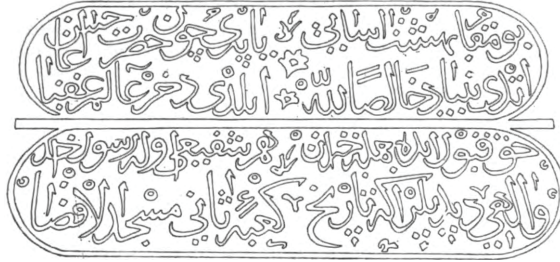 بو مقام بهشت اسایی یاپدی چون حضرت حسین اغا
ایتدی بنیاد خالصًا لله ایلدی ذخر عالم عقبا
حق قبول ایده جمله خیراتن هم شفیعی اوله رسول خدا
دیدیلر اکا تاریخ کعبۀ ثانی مسجد الاقصا